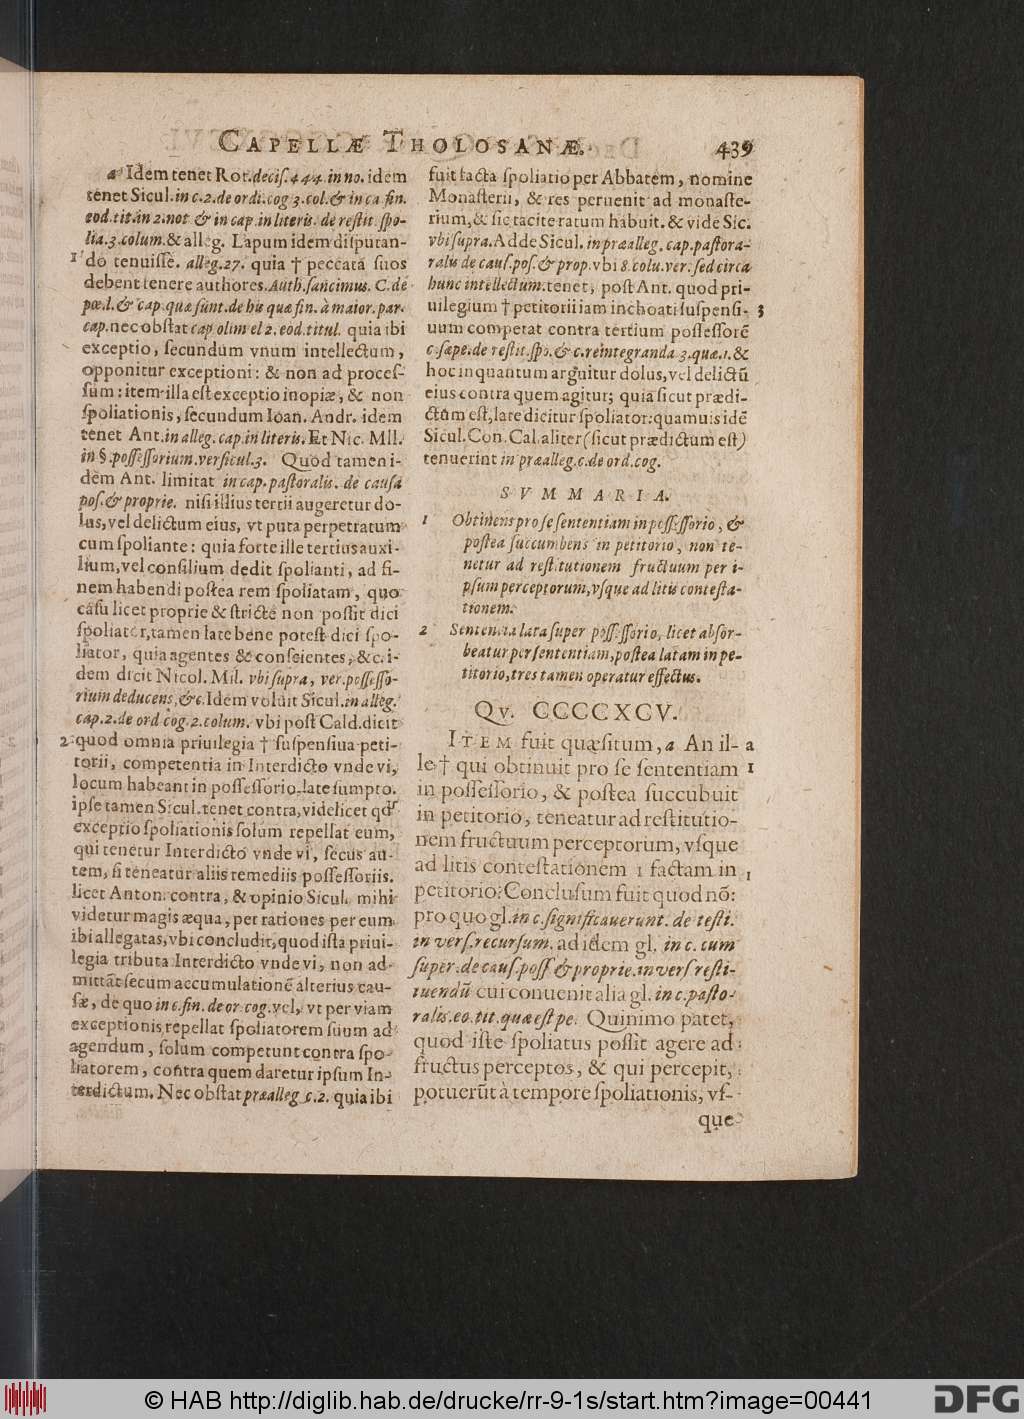 CAPELLÆ THOLOSANÆ. 439
a Idem tenet Rot. decis. 444. in no. idem
tenet Sicul. in c. 2. de ordi. cog 3. col. & in ca fin.
eod. tit. in 2. not & in cap. in literis. de restit. spo-
lia. 3. colum. & alleg. Lapum idem disputan-
1 do tenuisse. alleg. 27. quia † peccata suos
debent tenere authores. Auth. sancimus. C. de
pœ. l. & cap. quæ sunt. de his quæ fin. à maior. par.
cap. nec obstat cap olim el 2. eod. titul. quia ibi
exceptio, secundum vnum intellectum,
opponitur exceptioni: & non ad proces-
sum: item illa est exceptio inopiæ, & non
spoliationis, secundum Ioan. Andr. idem
tenet Ant. in alleg. cap. in literis. Et Nic. Mll.
in §. possessorium. versicul. 3. Quod tamen i-
dem Ant. limitat in cap. pastoralis. de causa
pos. & proprie. nisi illius tertii augeretur do-
lus, vel delictum eius, vt puta perpetratum
cum spoliante: quia forte ille tertius auxi-
lium, vel consilium dedit spolianti, ad fi-
nem habendi postea rem spoliatam, quo
casu licet proprie & stricte non possit dici
spoliator, tamen late bene potest dici spo-
liator, quia agentes & conseientes, &c. i-
dem dicit Nicol. Mil. vbi supra, ver. possesso-
rium deducens, &c. Idem voluit Sicul. in alleg.
cap. 2. de ord cog. 2. colum. vbi post Cald. dicit
2 quod omnia priuilegia † suspensiua peti-
torii, competentia in Interdicto vnde vi,
locum habeant in possessorio late sumpto.
ipse tamen Sicul. tenet contra, videlicet qd
exceptio spoliationis solum repellat eum,
qui tenetur Interdicto vnde vi, secus au-
tem, si teneatur aliis remediis possessoriis.
licet Anton. contra, & opinio Sicul. mihi
videtur magis æqua, per rationes per eum
ibi allegatas, vbi concludit, quod ista priui-
legia tributa Interdicto vnde vi, non ad-
mittāt secum accumulationē alterius cau-
sæ, de quo in c. fin. de or. cog. vel, vt per viam
exceptionis repellat spoliatorem suum ad
agendum, solum competunt contra spo-
liatorem, contra quem daretur ipsum In-
terdictum. Nec obstat præalleg c. 2. quia ibi
fuit facta spoliatio per Abbatem, nomine
Monasterii, & res peruenit ad monaste-
rium, & sic tacite ratum habuit. & vide Sic.
vbi supra. Adde Sicul. in præalleg. cap. pastora-
ralis de caus. pos. & prop. vbi 8. colu. ver. sed circa
hunc intellectum. tenet, post Ant. quod pri-
uilegium † petitorii iam inchoati suspensi- 3
uum competat contra tertium possessorē
c. sæpe. de restit. spo. & c. reintegranda 3. quæ. 1. &
hoc inquantum arguitur dolus, vel delictū
eius contra quem agitur; quia sicut prædi-
ctum est, late dicitur spoliator: quamuis idē
Sicul. Con. Cal. aliter (sicut prædictum est)
tenuerint in præalleg. c. de ord. cog.
SVMMARIA.
1 Obtinens pro se sententiam in possessorio, &
postea succumbens in petitorio, non te-
netur ad restitutionem fructuum per i-
psum perceptorum, vsque ad litis contesta-
tionem.
2 Sententia lata super possessorio, licet absor-
beatur per sententiam, postea latam in pe-
titorio, tres tamen operatur effectus.
Qv. CCCCXCV.
ITEM fuit quæsitum, a An il- a
le † qui obtinuit pro se sententiam 1
in possessorio, & postea succubuit
in petitorio, teneatur ad restitutio-
nem fructuum perceptorum, vsque
ad litis contestationem 1 factam in 1
petitorio? Conclusum fuit quod nō:
pro quo gl. in c. significauerunt. de testi.
in vers. recursum. ad idem gl. in c. cum
super. de caus. poss & proprie. in vers resti-
tuendū cui conuenit alia gl. in c. pasto-
ralis. eo. tit. quæ est pe. Quinimo patet,
quod iste spoliatus possit agere ad
fructus perceptos, & qui percepit,
potuerūt à tempore spoliationis, vs-
que
© HAB http://diglib.hab.de/drucke/rr-9-1s/start.htm?image=00441 DFG